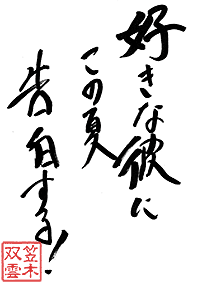 好きな彼に
この夏
告白する!
笠木
双雲